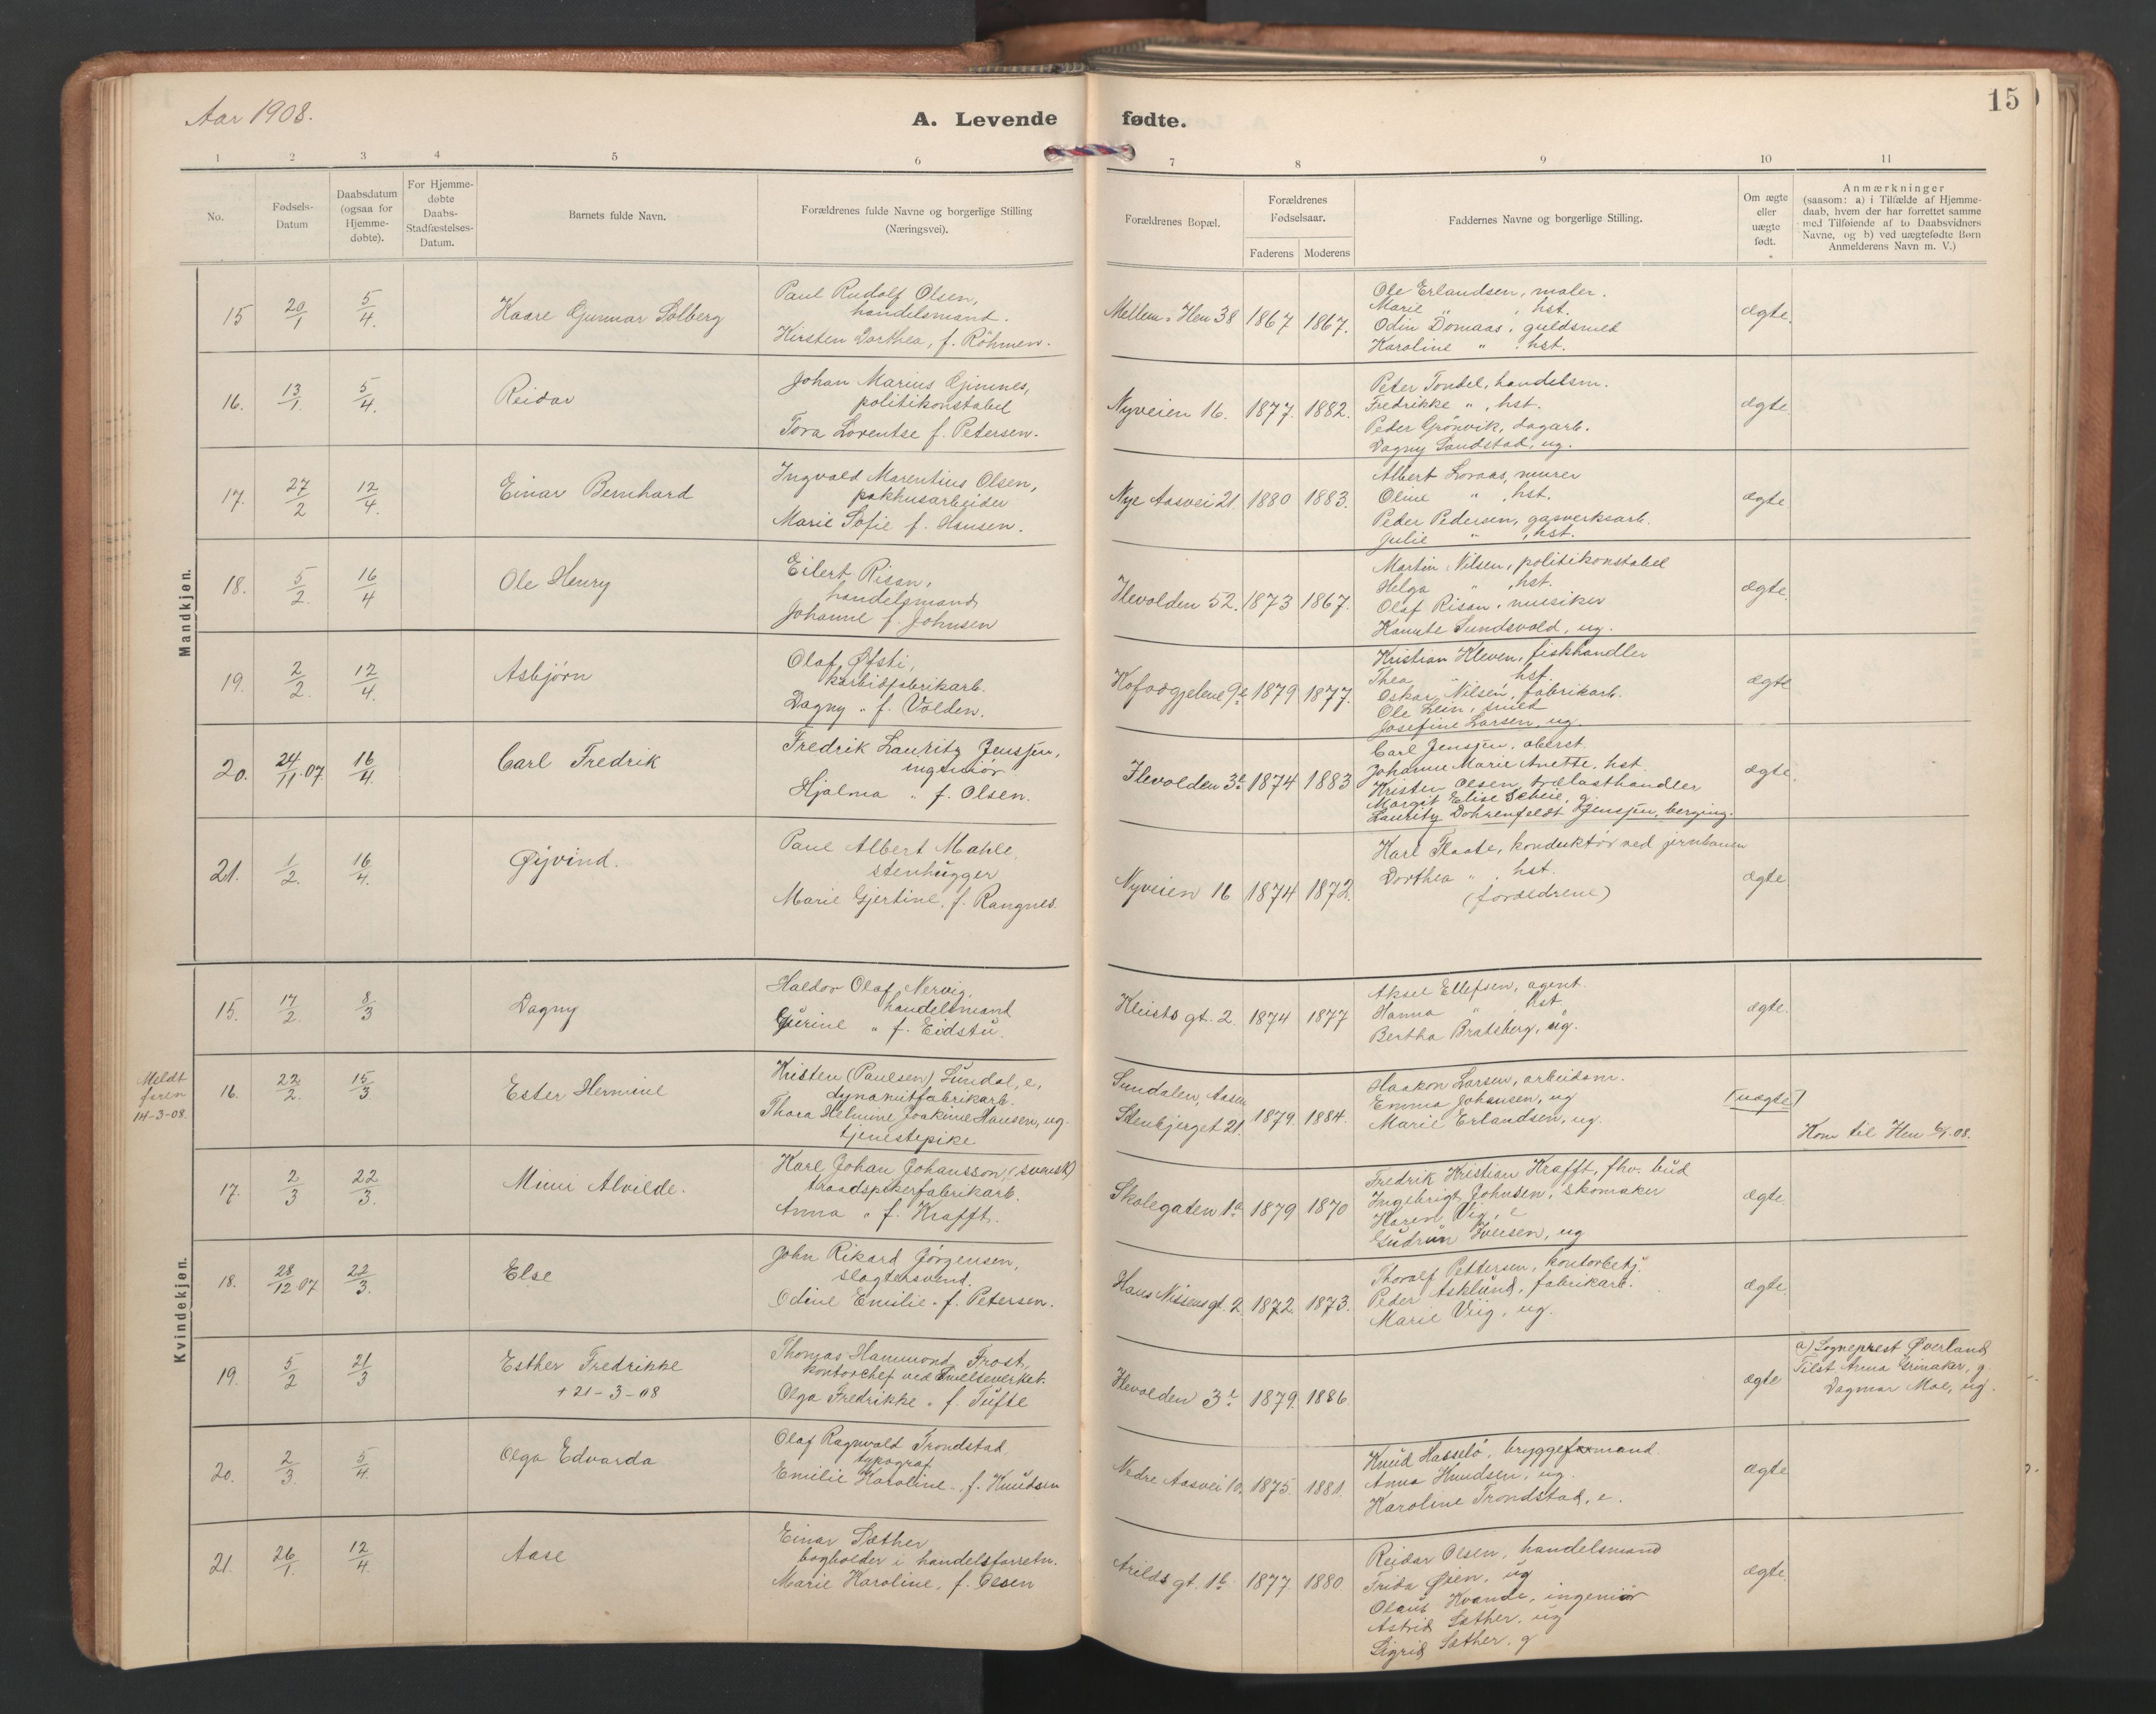 Aar 1908.
A. Levende fødte.
15
1 2 3 4 5 6 7 8 9 10 11
No.
Fødsels-
Datum
Daabsdatum
(ogsaa for
Hjemme-
døbte).
For Hjemme-
døbte
Daabs-
Stadfæstelses-
Datum.
Barnets fulde Navn.
Forældrenes fulde Navne og borgerlige Stilling
(Næringsvei).
Forældrenes Bopæl.
Forældrenes
Fødselsaar.
Faderens Moderens
Faddernes Navne og borgerlige Stilling.
Om ægte
eller
uægte
født.
Anmærkninger
(saasom: a) i Tilfælde af Hjemme-
daab, hvem der har forrettet samme
med Tilføiende af to Daabsvidners
Navne, og b) ved uægtefødte Børn
Anmelderens Navn m. V.)
Mandkjøn.
15 20/1 5/4. Kaare Gunnar Solberg
Paul Rudolf Olsen,
handelsmand.
Kirsten Dorthea, f. Röhmen.
Mellem-Ilen 38 1867 1867.
Ole Erlandsen, maler.
Marie " , hst.
Odin Domaas, guldsmed
Karoline " , hst.
ægte.
16. 13/1. 5/4. Reidar
Johan Marius Gjimnes,
politikonstabel
Tora Lorentse f. Petersen.
Nyveien 16. 1877. 1882.
Peter Tondel, handelsm.
Fredrikke " , hst.
Peder Grönvik, dagarb.
Dagny Sandstad, ug.
ægte
17. 27/2 12/4. Einar Bernhard
Ingvald Marentius Olsen,
pakhusarbeider
Marie Sofie f. Hansen.
Nye Aasvei 21. 1880 1883.
Albert Loraas, murer
Oline " , hst.
Peder Pedersen, gasverksarb.
Julie " , hst.
ægte
18. 5/2. 16/4 Ole Henry
Eilert Risan,
handelsmand
Johanne f. Johnsen
Ilevolden 52. 1873 1867.
Martin Nilsen, politikonstabel
Helga " , hst.
Olaf Risan, musiker
Kanute Sundsvold, ug.
ægte.
19. 2/2. 12/4. Asbjørn
Olaf Øfsti,
karbidfabrikarb.
Dagny " f. Volden.
Kofodgjelene 9e 1879 1877.
Kristian Kleven, fiskhandler
Thea " hst.
Oskar Nilsen, fabrikarb.
Ole Lein, smed
Josefine Larsen, ug.
ægte
20. 24/11.07. 16/4. Carl Fredrik
Fredrik Lauritz Jenssen,
ingeniör
Hjalma " f. Olsen.
Ilevolden 3e 1874 1883
Carl Jenssen, oberst.
Johanne Marie Anette, hst.
Kristen Olsen, trælasthandler
Margit Elise Scheie, g.
Lauritz Dohrenfeldt Jenssen, berging.
ægte.
21. 1/2. 16/4. Øyvind.
Paul Albert Mahle,
stenhugger
Marie Gjertine, f. Rangnes.
Nyveien 16 1874 1872.
Karl Flaate, konduktör ved jernbanen
Dorthea " , hst.
(forældrene)
ægte
Kvindekjøn.
15. 17/2. 8/3 Dagny
Haldor Olaf Nervig,
handelsmand
Gurine " f. Eidstu.
Kleists gt. 2. 1874 1877
Aksel Ellefsen, agent.
Hanna " , hst.
Bertha Bratsberg, ug.
ægte.
Meldt
faren
14-3-08.
16. 22/2. 15/3 Ester Hermine
Kristen (Paulsen) Sundal, e,
dynamitfabrikarb.
Thora Helmine Joakime Hansen, ug.
tjenestepike
Sundalen, Aasen
Stenbjerget 21. 1879. 1884.
Haakon Larsen, arbeidsm.
Emma Johansen, ug
Marie Erlandsen, ug.
[uægte]
Kom til Ilen 6/1.08.
17. 2/3 22/3. Mimi Alvilde.
Karl Johan Johansson, (svensk)
traadspikerfabrikarb.
Anna " f. Krafft.
Skolegaten 1a 1879 1870
Fredrik Kristian Krafft, fhv. bud
Ingebrigt Johnsen, skomaker
Karen Vig, e
Gudrun Iversen, ug
ægte.
18. 28/12 07 22/3. Else
John Rikard Jörgensen,
slagtersvend.
Odine Emilie " f. Petersen.
Hans Nissensgt. 2. 1872. 1873.
Thoralf Pettersen, kontorbetj.
Peder Asklund, fabrikarb.
Marie Viig, ug.
ægte.
19. 5/2 21/3 Esther Fredrikke
+ 21-3-08
Thomas Hammond Frost,
kontorchef ved
Olga Fredrikke " f. Tufte
Ilevolden 3e 1879. 1886.
ægte
a) Sogneprest Øverland
Tilst. Anna Grimaker, g.
Dagmar Moe, ug.
20. 2/3. 5/4. Olga Edvarda
Olaf Ragnvald Trondstad
typograf
Emilie Karoline " f. Knudsen
Nedre Aasvei 10. 1875. 1881.
Knud Hasselö, bryggeformand.
Anna Knudsen, ug.
Karoline Trondstad, e.
ægte
21. 26/1. 12/4. Aase
Einar Sæther
bogholder i handelsforretn.
Marie Karoline, f. Olsen
Arilds gt. 1b 1877. 1880.
Reidar Olsen, handelsmand
Frida Øien, ug
Olaus Kvande, ingeniör
Astrid Sæther, ug
Sigrid Sæther, g
ægte.